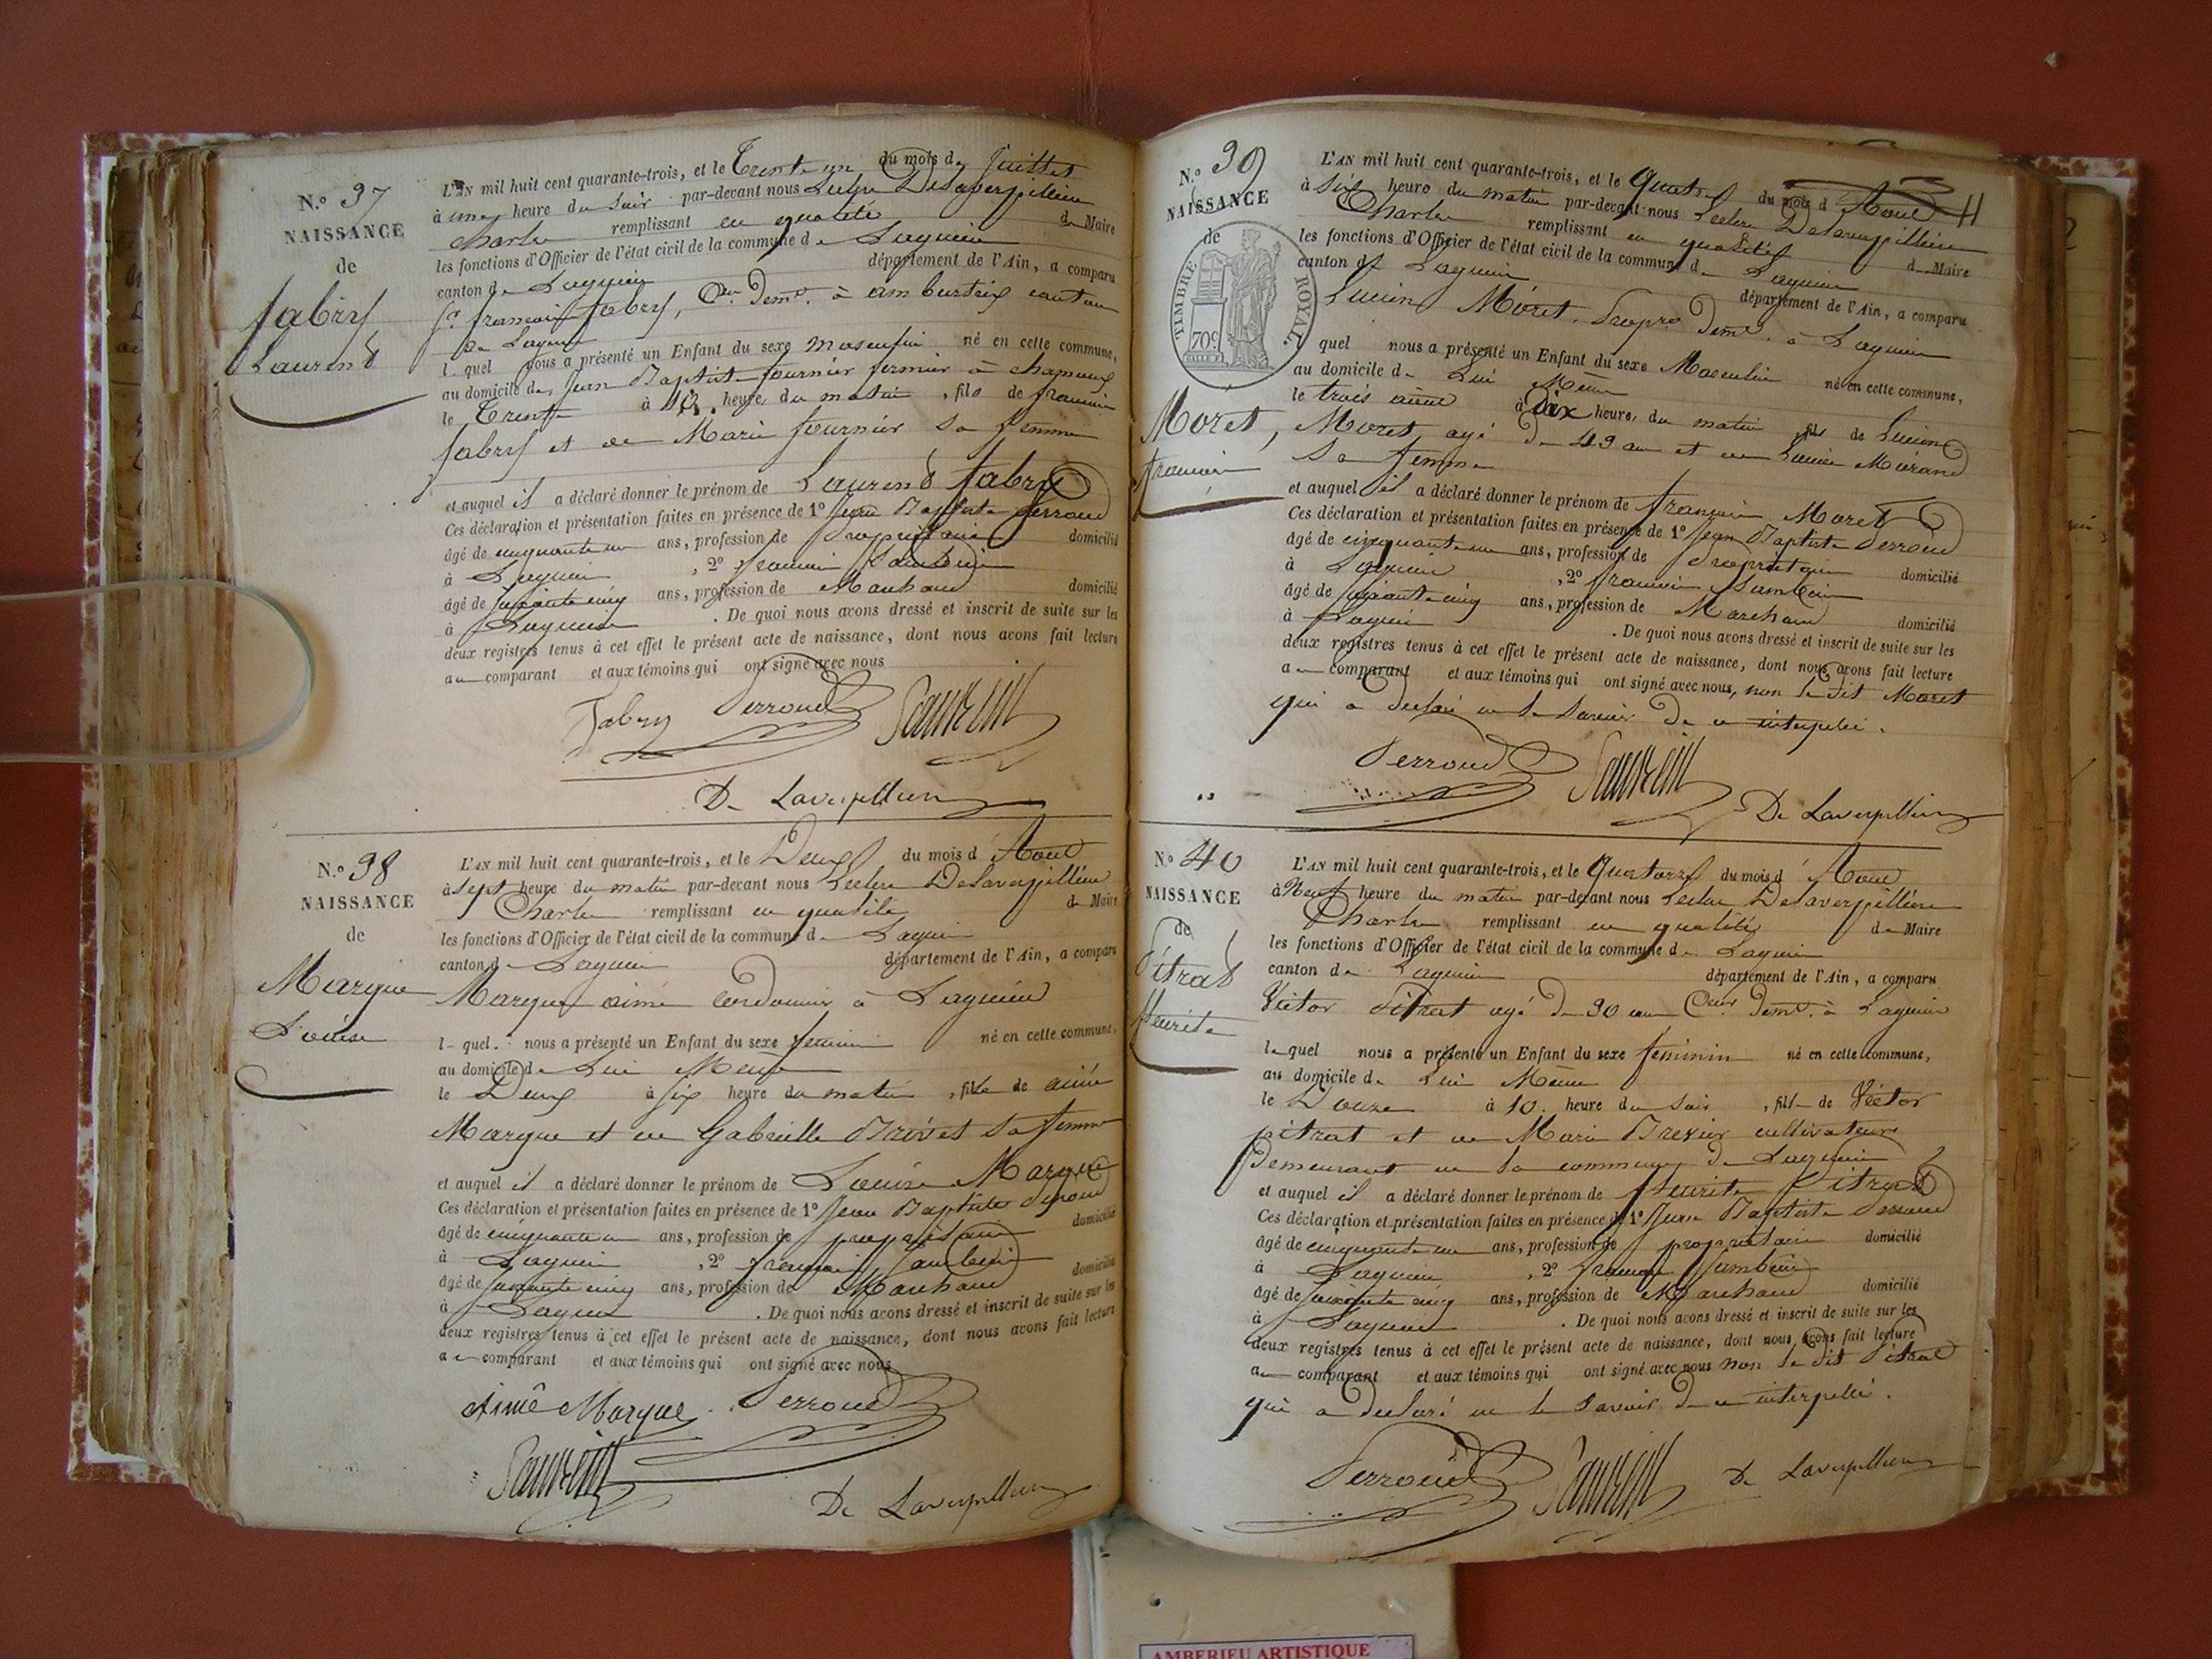 N.º 37
NAISSANCE
de
Fabry
Laurend
L'AN mil huit cent quarante-trois, et le Trente un du mois de Juillet
à une heure du Soir par-devant nous Leclerc Delaverpillière
Charles remplissant en qualité de Maire
les fonctions d'Officier de l'état civil de la commune de Lagnieu
canton de Lagnieu département de l'Ain, a comparu
francois fabry, demt. à ambutrix canton
de Lagnieu
lequel nous a présenté un Enfant du sexe masculin né en cette commune,
au domicile de Jean Baptiste fournier fermier à
le Trente à heure du matin, fils de francois
fabry et de Marie fournier sa femme
et auquel il a déclaré donner le prénom de Laurend fabry
Ces déclaration et présentation faites en présence de 1º Jean Baptiste Perroud
âgé de cinquante un ans, profession de Propriétaire domicilié
à Lagnieu, 2º francois
âgé de soixante cinq ans, profession de Marchand domicilié
à Lagnieu. De quoi nous avons dressé et inscrit de suite sur les
deux registres tenus à cet effet le présent acte de naissance, dont nous avons fait lecture
au comparant et aux témoins qui ont signé avec nous
Fabry Perroud
De Laverpillière
N.º 38
NAISSANCE
de
Marque
Louise
L'AN mil huit cent quarante-trois, et le Deux du mois d'Aout
à sept heure du matin par-devant nous Leclerc Delaverpillière
Charles remplissant en qualité de Maire
les fonctions d'Officier de l'état civil de la commune de Lagnieu
canton de Lagnieu département de l'Ain, a comparu
Marque aimé cordonnier à Lagnieu
lequel nous a présenté un Enfant du sexe féminin né en cette commune,
au domicile de Lui Même
le Deux à six heure du matin, fille de aimé
Marque et de Gabrielle Brevet sa femme
et auquel il a déclaré donner le prénom de Louise Marque
Ces déclaration et présentation faites en présence de 1º Jean Baptiste Perroud
âgé de cinquante un ans, profession de propriétaire domicilié
à Lagnieu, 2º francois
âgé de soixante cinq ans, profession de Marchand domicilié
à Lagnieu. De quoi nous avons dressé et inscrit de suite sur les
deux registres tenus à cet effet le présent acte de naissance, dont nous avons fait lecture
au comparant et aux témoins qui ont signé avec nous
Aimé Marque Perroud
De Laverpillière
N.º 39
NAISSANCE
de
TIMBRE ROYAL
70c
Moret,
francois
L'AN mil huit cent quarante-trois, et le Quatre du mois d'Aout
à six heure du matin par-devant nous Leclerc Delaverpillière
Charles remplissant en qualité de Maire
les fonctions d'Officier de l'état civil de la commune de Lagnieu
canton de Lagnieu département de l'Ain, a comparu
Lucien Moret, Propre demt. à Lagnieu
quel nous a présenté un Enfant du sexe Masculin né en cette commune,
au domicile de Lui Même
le trois aout à Dix heure, du matin fils de Lucien
Moret, agé de 49 ans et de Lucie
sa femme
et auquel il a déclaré donner le prénom de francois Moret
Ces déclaration et présentation faites en présence de 1º Jean Baptiste Perroud
âgé de cinquante un ans, profession de Propriétaire domicilié
à Lagnieu, 2º francois
âgé de soixante cinq ans, profession de Marchand domicilié
à Lagnieu. De quoi nous avons dressé et inscrit de suite sur les
deux registres tenus à cet effet le présent acte de naissance, dont nous avons fait lecture
au comparant et aux témoins qui ont signé avec nous, non le dit Moret
qui a déclaré ne le savoir de ce interpellé.
Perroud
De Laverpillière
N.º 40
NAISSANCE
de
Pitrat
fleurite
L'AN mil huit cent quarante-trois, et le Quatorze du mois d'Aout
à Neuf heure du matin par-devant nous Leclerc Delaverpillière
Charles remplissant en qualité de Maire
les fonctions d'Officier de l'état civil de la commune de Lagnieu
canton de Lagnieu département de l'Ain, a comparu
Victor Pitrat agé de 30 ans demt. à Lagnieu
lequel nous a présenté un Enfant du sexe féminin né en cette commune,
au domicile de Lui Même
le Douze à 10 heure du Soir, fille de Victor
pitrat et de Marie cultivateurs
Demeurant en la commune de Lagnieu
et auquel il a déclaré donner le prénom de fleurite Pitrat
Ces déclaration et présentation faites en présence de 1º Jean Baptiste Perroud
âgé de cinquante un ans, profession de propriétaire domicilié
à Lagnieu, 2º francois
âgé de soixante cinq ans, profession de Marchand domicilié
à Lagnieu. De quoi nous avons dressé et inscrit de suite sur les
deux registres tenus à cet effet le présent acte de naissance, dont nous avons fait lecture
au comparant et aux témoins qui ont signé avec nous non le dit Pitrat
qui a déclaré ne le savoir de ce interpellé.
Perroud
De Laverpillière
AMBERIEU ARTISTIQUE